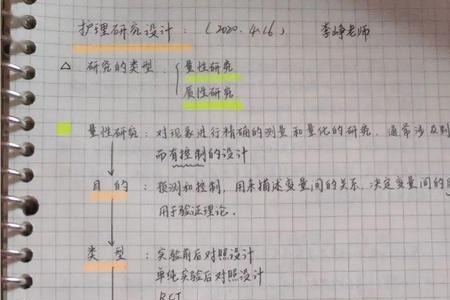 护理研究设计：（2020.4.16） 李峥老师
△ 研究的类型：量性研究
质性研究
量性研究：对现象进行精确的测量和量化的研究，通常涉及到
而有控制的设计
目的：预测和控制，用来描述变量间的关系，决定变量间的
用于验证理论。
类型：实验前后对照设计
单纯实验后对照设计
RCT